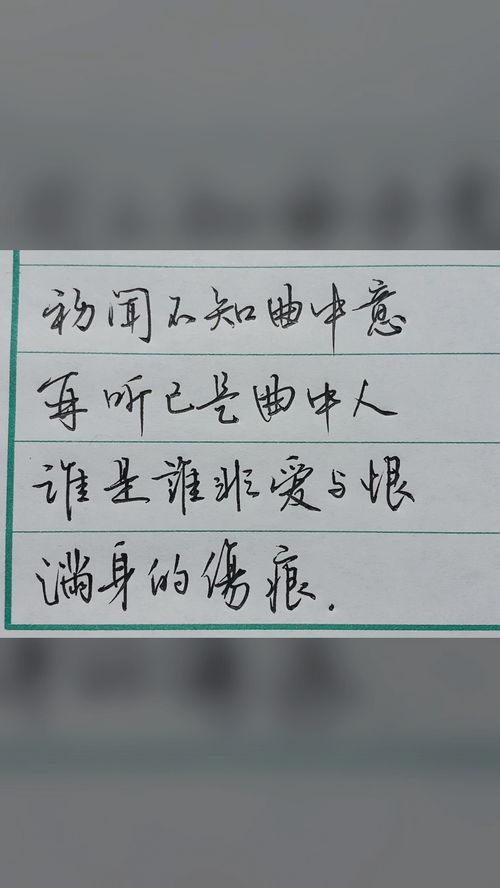 初闻不知曲中意
再听已是曲中人
谁是誰非爱与恨
满身的傷痕.